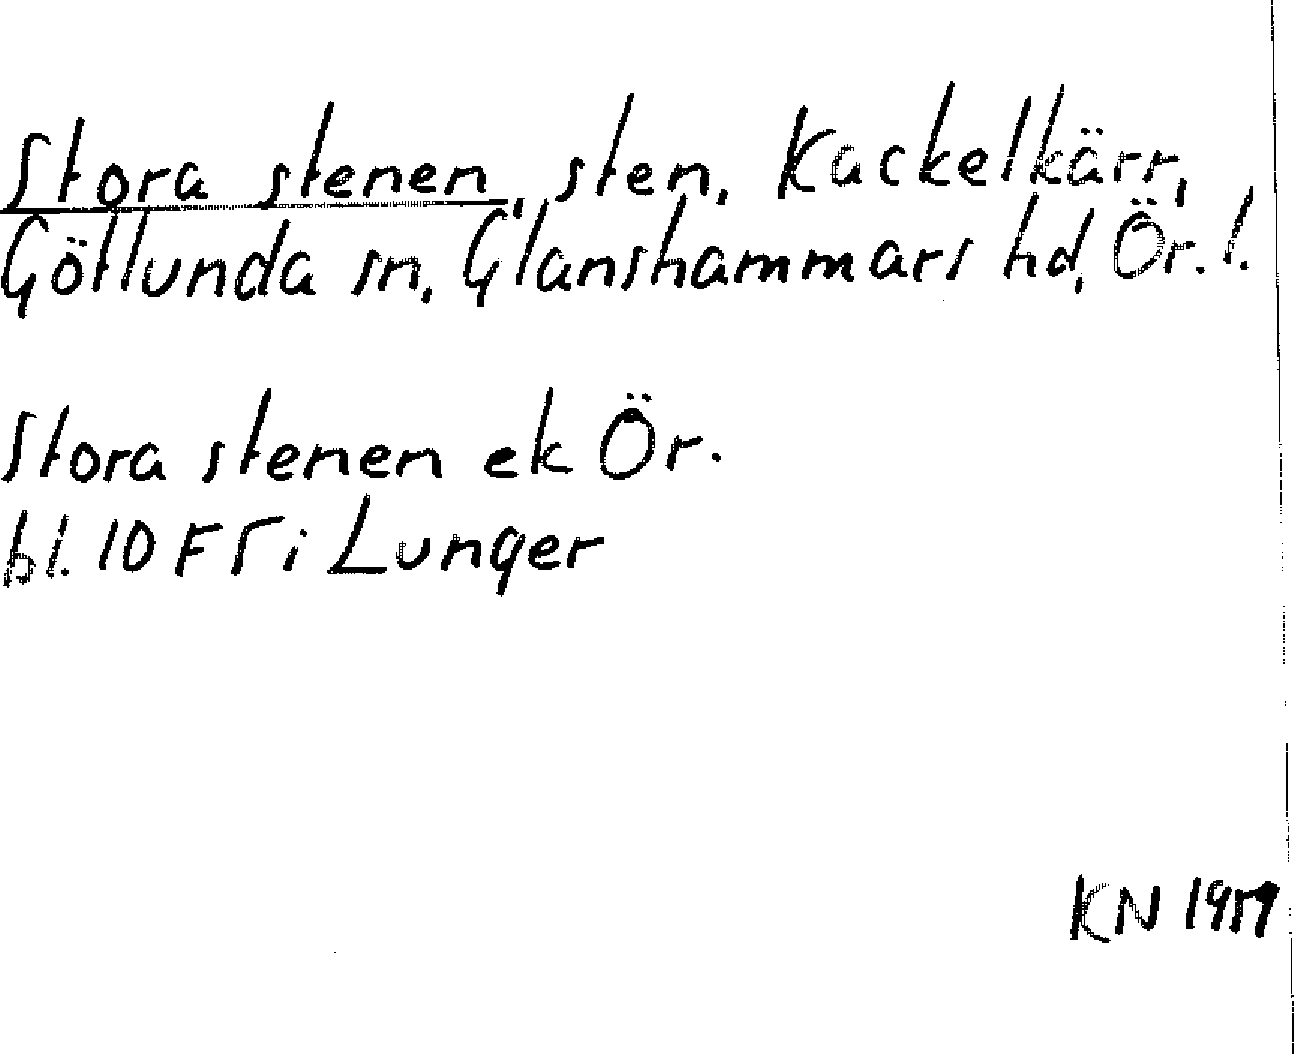 Stora stenen, sten, Kackelkärr,
Götlunda sn, Glanshammars hd, Ör. l.
Stora stenen ek Ör.
bl. 10 F 5 i Lunger
KN 1959